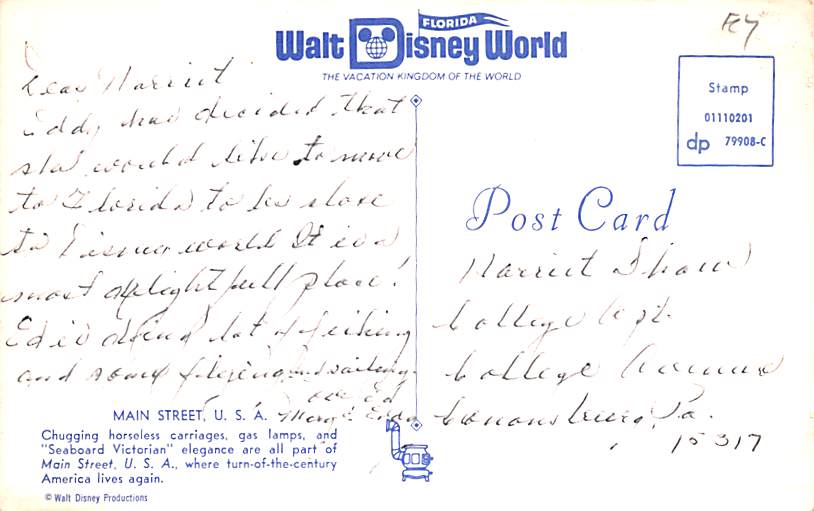 FLORIDA
Walt Disney World
THE VACATION KINGDOM OF THE WORLD
FLY
Stamp
01110201
dp 79908-C
Post Card
Dear Harriet
Eddy has decided that
she would like to move
to Florida to be close
to Disney world It is a
most delightfull place!
Ed is doing lot of fishing
and some flying and sailing.
Love Ed
Marg & Eddy
Harriet Shaw
College Apt.
College Avenue
Canonsburg, Pa.
15317
MAIN STREET, U. S. A.
Chugging horseless carriages, gas lamps, and
"Seaboard Victorian" elegance are all part of
Main Street, U. S. A., where turn-of-the-century
America lives again.
© Walt Disney Productions